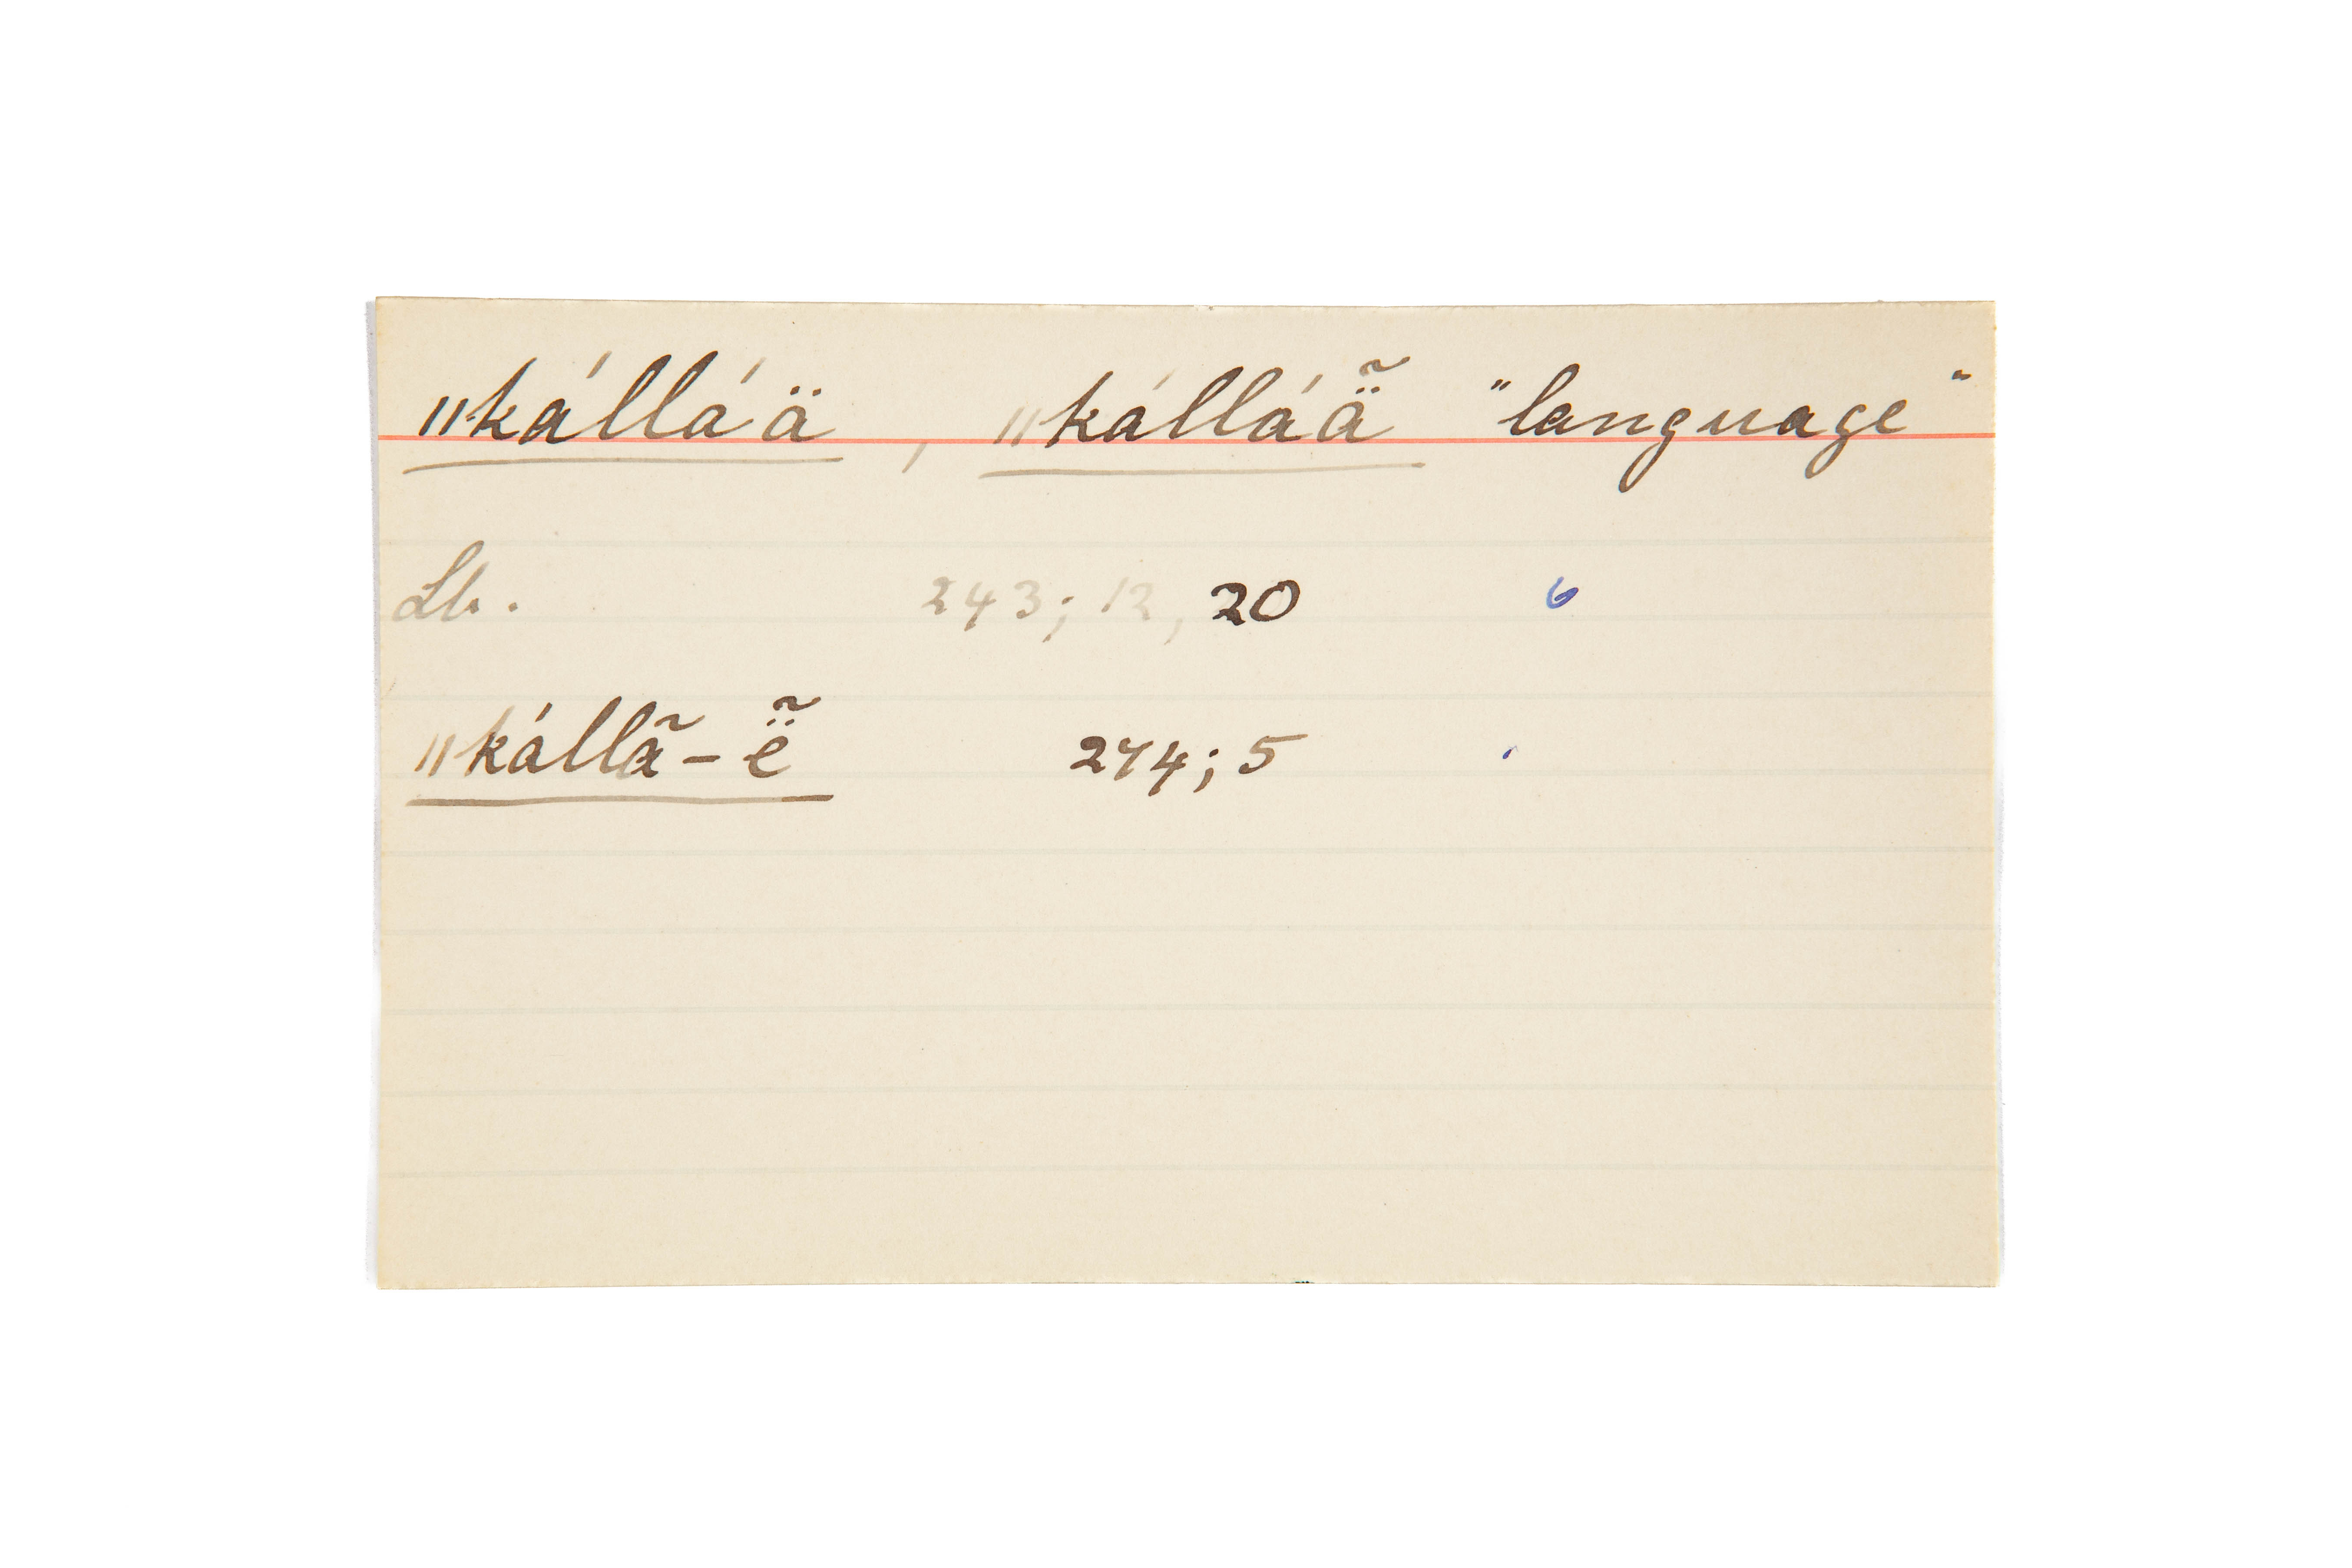 ǁkálláä , ǁkálláä̃ "language"
Lb. 243; 12, 20 6
ǁkállã-ë̃ 274; 5